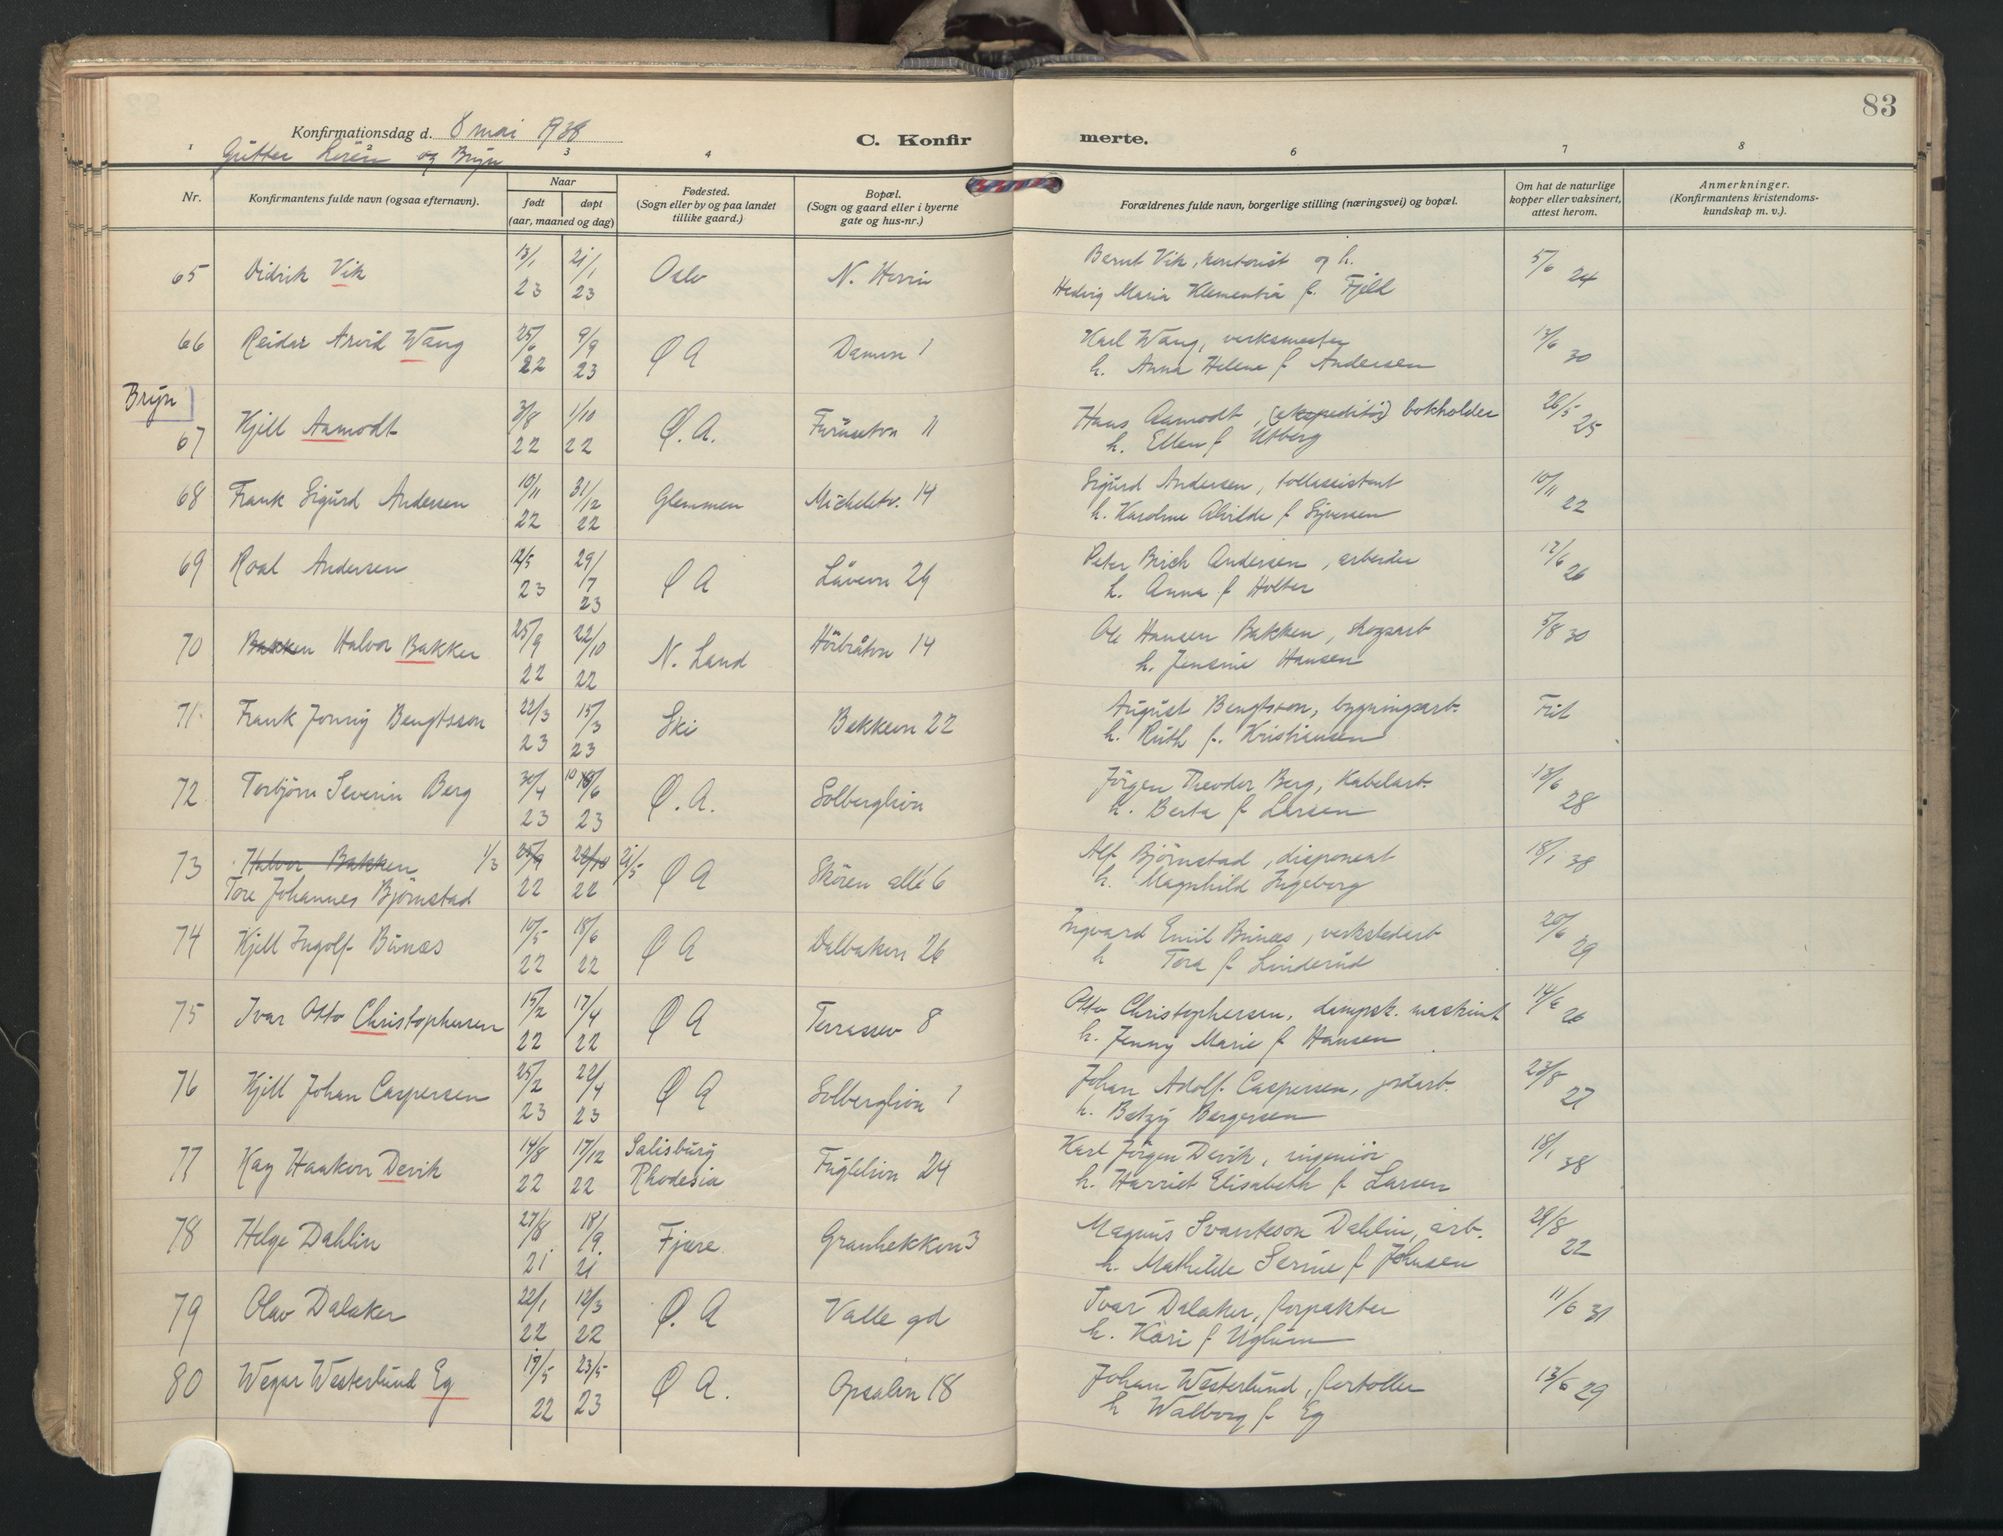 83
Konfirmationsdag d. 8 mai 1938
C. Konfirmerte.
Gutter Løren og Bryn
1 2 3 4 6 7 8
Nr.
Konfirmantens fulde navn (ogsaa efternavn).
Naar
født døpt
(aar, maaned og dag)
Fødested.
(Sogn eller by og paa landet
tillike gaard.)
Bopæl.
(Sogn og gaard eller i byerne
gate og hus-nr.)
Forældrenes fulde navn, borgerlige stilling (næringsvei) og bopæl.
Om hat de naturlige
kopper eller vaksinert,
attest herom.
Anmerkninger.
(Konfirmantens kristendoms-
kundskap m. v.).
65 Didrik Vik 13/1 23 21/1 23 Oslo
Bernt Vik, kontorist og h. 5/6 24
Hedvig Maria Klementia f. Fjeld
66 Reidar Arvid Wang 25/6 22 9/9 23 Ø A
Karl Wang, verksmester 13/6 30
h. Anna Helene f Andersen
Bryn
67 Kjell Aamodt 3/8 22 1/10 22 Ø. A. Furusetvn 11
Hans Aamodt, (ekspeditør) bokholder 26/5 25
h. Ellen f Utberg
68 Frank Sigurd Andersen 10/11 22 31/12 22 Glemmen Micheletv. 14
Sigurd Andersen, tollassistent 10/11 22
h. Karoline Alvilde f Syversen
69 Roal Andersen 12/5 23 29/7 23 Ø A Låvevn 29
Peter Birch Andersen, arbeider 17/6 26
h. Anna f Holter
70 Bakken Halvor Bakken 25/9 22 22/10 22 N. Land Hörbråtvn 14
Ole Hansen Bakken, skogsarb 5/8 30
h. Jensine Hansen
71 Frank Jonny Bengtsson 22/3 23 15/3 23 Ski Bekkevn 22
August Bengtsson, bygningsarb.
h. Ruth f. Kristiansen
72 Torbjørn Severin Berg 30/4 23 10/6 23 Ø. A. Solberglivn
Jörgen Theodor Berg, Kabelarb. 13/6 28
h. Berta f Larsen
73 Halvor Bakken 1/3 25/9 22 22/10 22 21/5 Ø A Skøren allé 6
Tore Johannes Bjørnstad
Alf Bjørnstad, disponent 18/1 38
h. Magnhild Ingeborg
74 Kjell Ingolf Bunæs 10/5 22 18/6 22 Ø A Dalbakkvn 26
Ingvard Emil Bunæs, verkstedarb 20/6 29
h Tora f Linderud
75 Ivar Otto Christophersen 15/2 22 17/4 22 Ø A Terrassev 8
Otto Christophersen, dampsk. maskinist 14/6 26
h. Jenny Marie f Hansen
76 Kjell Johan Caspersen 25/2 23 22/4 23 Ø A Solberglivn 1
Johan Adolf Caspersen, jordarb. 23/8 27
h. Betzy Bergersen
77 Kay Haakon Devik 14/8 22 17/12 22 Salisbury Rhodesia Fuglelivn 24
Karl Jörgen Devik, ingeniør 18/1 38
h. Harriet Elisabeth f Larsen
78 Helge Dahlin 27/8 21 18/9. 21 Fjære Granhekkvn 3
Magnus Svanteson Dahlin, arb. 28/8 22
h. Mathilde Serine f Johnsen
79 Olav Dalaker 22/1 22 12/3 22 Ø. A Valle gd
Ivar Dalaker, forpakter 11/6 31
h. Kari f Uglum
80 Wegar Westerlund Eg 17/5 22 23/5 23 Ø A. Opsalvn 18
Johan Westerlund, fortoller 13/6 29
h Walborg f Eg